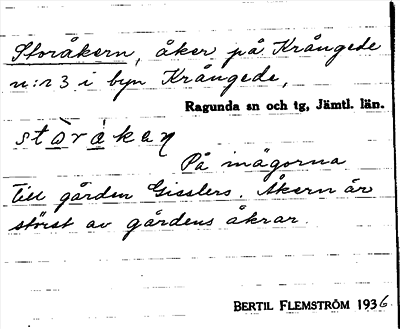 Storåkern, åker på Krångede
n:r 3 i byn Krångede,
Ragunda sn och tg, Jämtl. län.
På inägorna
till gården Gisslers. Åkern är
störst av gårdens åkrar.
BERTIL FLEMSTRÖM 1936.